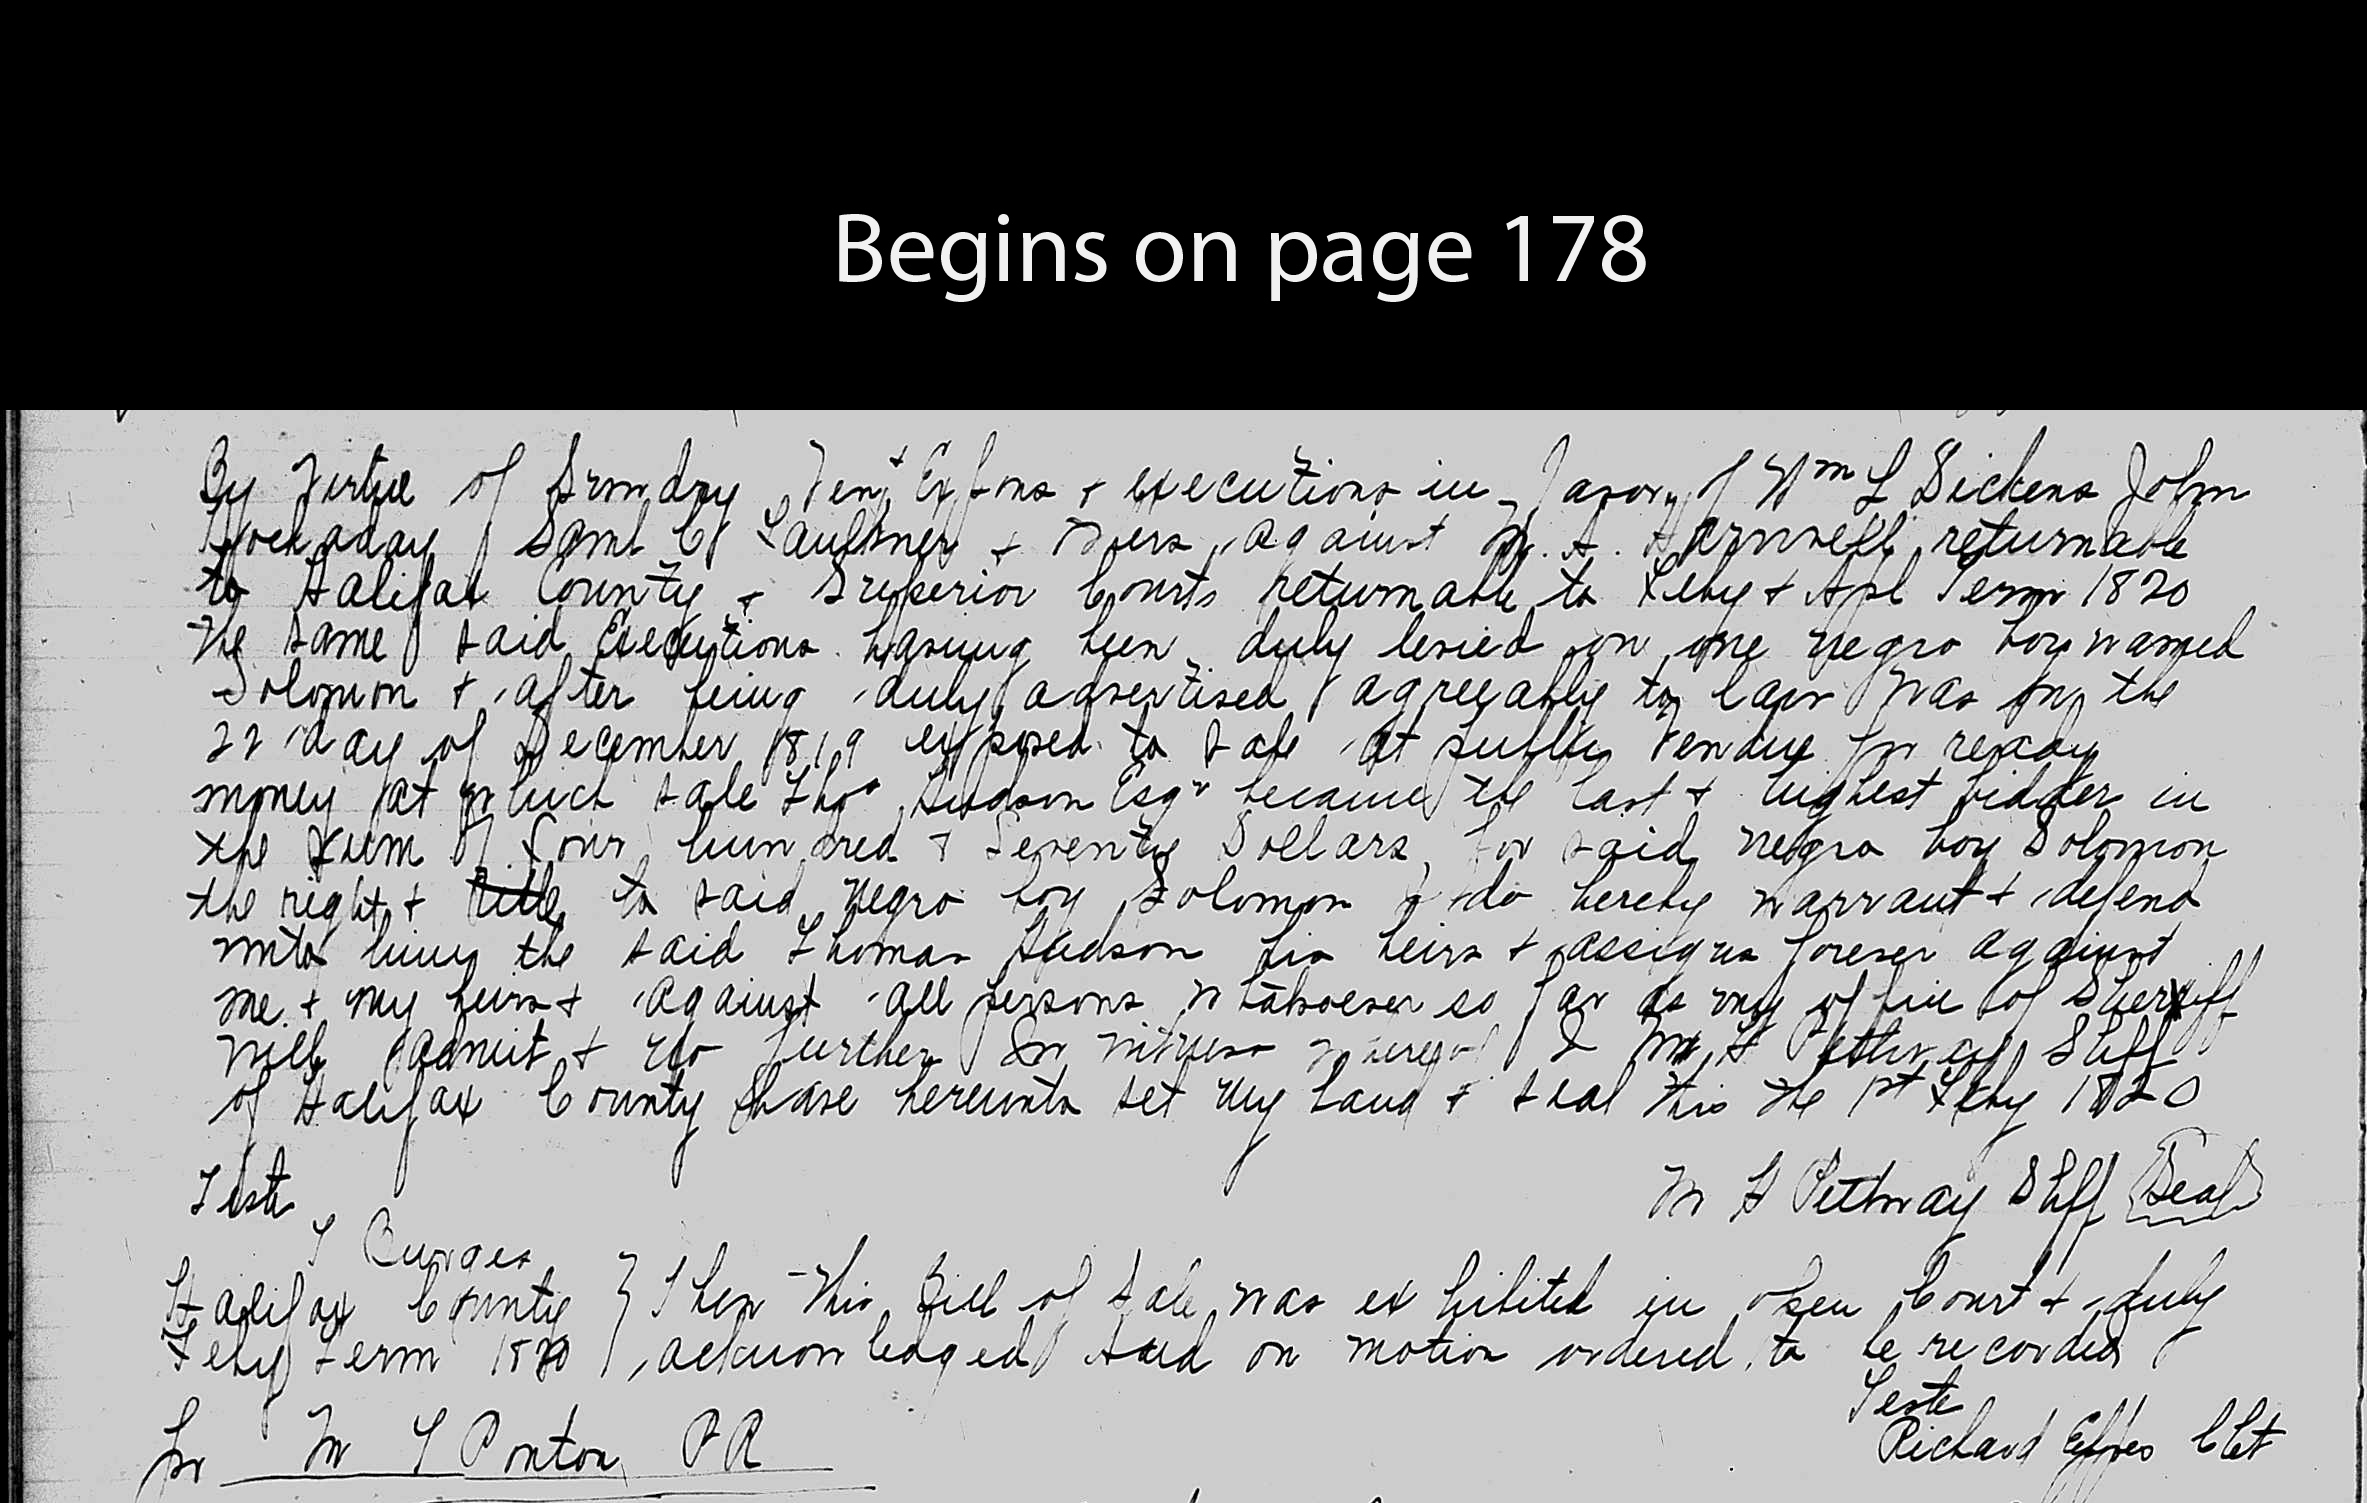 Begins on page 178
By Virtue of Sundry Ven: Expons + executions in favor of Wm L Dickens John
Hockaday Saml C Faulkner + others against M. A. returnable
to Halifax County + Superior Courts returnable to Feby + Apl Term 1820
the same said Executions having been duly levied on one negro boy named
Solomon + after being duly advertised agreeably to law was on the
22 day of December 1819 exposed to Sale at public Vendue for ready
money at which sale Thos Hudson Esqr became the last + highest bidder in
the sum of four hundred + Seventy Dollars, for said negro boy Solomon
the right + title to said negro boy Solomon I do hereby warrant + defend
unto him the said Thomas Hudson his heirs + assigns forever against
me + my heirs + against all persons whatsoever so far as my office of Sheriff
will admit + no further In witness whereof I M H Pettway Shff
of Halifax County have hereunto set my hand + seal this the 1st Feby 1820
Teste
M H Pettway Shff Seal
T Burges
Halifax County } Then this Bill of Sale was exhibited in open Court + duly
Feby Term 1820 } acknowledged And on motion ordered to be recorded
Teste
Richard Eppes Clk
pr M T Ponton PR